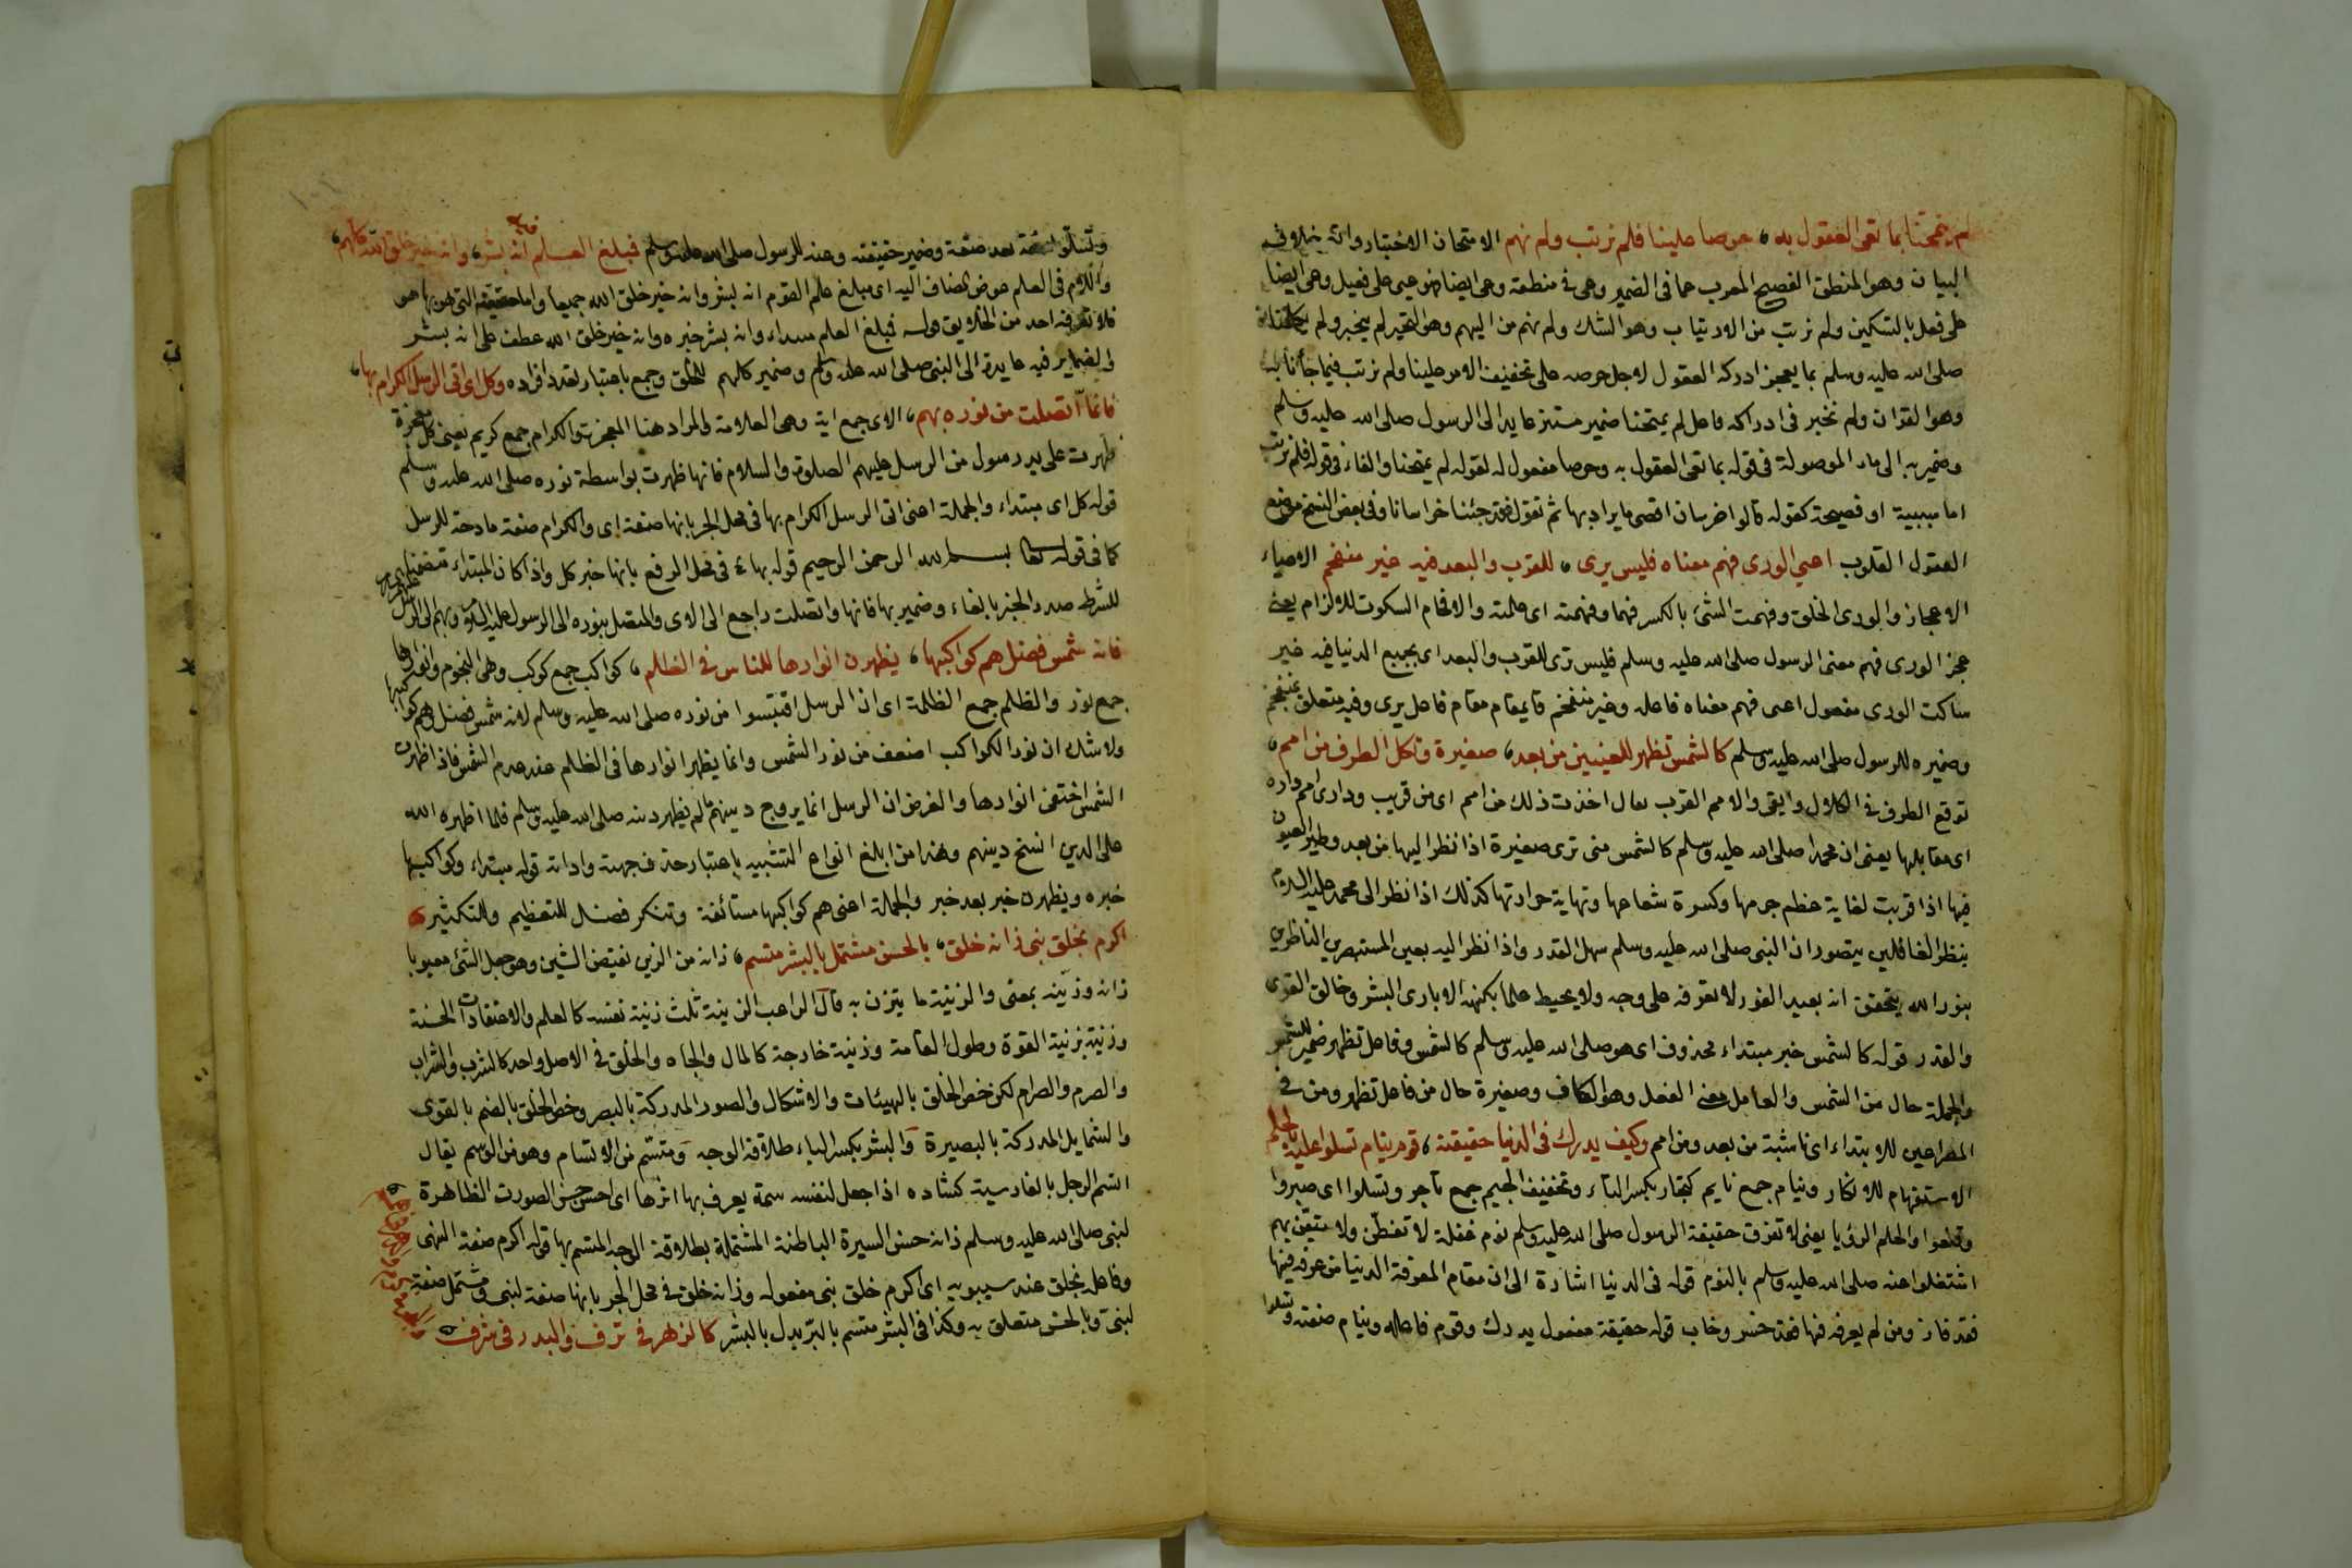 لم يمتحنا بما تعى العقول به حرصا علينا فلم نرتب ولم نهم الامتحان الاختبار
البيان وهو المنطق الفصيح المعرب عما فى الضمير وعى فى منطقه وعى ايضا فهو عيى على فعيل وعى ايضا
على فعل بالتسكين ولم نرتب من الارتياب وهو الشك ولم نهم من اليهم وهو التحير لم يتخير ولم
صلى الله عليه وسلم بما يعجز ادركه العقول لاجل حرصه على تخفيف الامر علينا ولم نرتب فيما جاءنا به
وهو القران ولم نتحير فى ادراكه فاعل لم يمتحنا ضمير مستتر عايد الى الرسول صلى الله عليه وسلم
وضمير به الى ماء الموصولة فى قوله بما تعى العقول به وحرصا مفعول له لقوله لم يمتحنا والفاء فى قوله فلم نرتب
اما سببية او فصيحة كقوله قالوا خرسان اقصى ما يراد بها ثم نقول فقد جئنا خراسانا وفى بعض النسخ موضع
العقول القلوب اعيى الورى فهم معناه فليس يرى للقرب والبعد فيه غير منفحم الاعياء
الاعجاز والورى الخلق وفهمت الشئ بالكسر فهما وفهمته اى علمته والافحام السكوت للالزام يعنى
عجز الورى فهم معنى الرسول صلى الله عليه وسلم فليس ترى للقرب والبعد اى بجميع الدنيا فيه غير
ساكت الورى مفعول اعيى فهم معناه فاعله وغير منفحم قايمقام مقام فاعل يرى وفيه متعلق بمنفحم
وضميره للرسول صلى الله عليه وسلم كالشمس تظهر للعينين من بعد صغيرة وتكل الطرف من امم
توقع الطرف فى الكلال وايقى والامم القرب يقال اخذت ذلك من امم اى من قريب ودارى امم داره
اى مقابلها يعنى ان محمدا صلى الله عليه وسلم كالشمس متى ترى صغيرة اذا نظر اليها من بعد
فيها اذا قربت لغاية عظم جرمها وكسرة شعاعها ونهاية حرارتها كذلك اذا نظر الى محمد عليه السلام
بنظر الغافلين يتصور ان النبى صلى الله عليه وسلم سهل القدر واذا نظر اليه بعين المستبصرين الناظرين
بنور الله يتحقق انه بعيد الغور لا تعرفه على وجه ولا يحيط علما بكنهه الا بارى البشر وخالق القوى
والقدر قوله كالشمس خبر مبتداء محذوف اى هو صلى الله عليه وسلم كالشمس وفاعل تظهر ضمير للشمس
والجملة حال من الشمس والعامل معنى الفعل وهو الكاف وصغيرة حال من فاعل تظهر ومن فى
المصراعين للابتداء اى ناشئة من بعد ومن امم وكيف يدرك فى الدنيا حقيقته قوم نيام تسلوا عليه بالحلم
الاستفهام للانكار ونيام جمع نايم كتجار بكسر التاء وتخفيف الجيم جمع تاجر وتسلوا اى صبروا
وقنعوا والحلم الرؤيا يعنى لا تعرف حقيقة الرسول صلى الله عليه وسلم نوم غفلة لا تفطن ولا متيقن بهم
اشتغلوا عنه صلى الله عليه وسلم بالنوم قوله فى الدنيا اشارة الى ان مقام المعرفة الدنيا من عرفه فيها
فقد فاز ومن لم يعرفه فيها فقد خسر وخاب قوله حقيقة مفعول يدرك وقوم فاعله ونيام صفته وتسلوا
وتسلوا صفة بعد صفة وضمير حقيقته وعنه للرسول صلى الله عليه وسلم فمبلغ العلم فيه انه بشر وانه خير خلق الله كلهم
واللام فى العلم عوض المضاف اليه اى مبلغ علم القوم انه بشر وانه خير خلق الله جميعا واما حقيقته التى هو بها هو
فلا تعرفه احد من الخلايق قوله فمبلغ العلم مبتداء وانه بشر خبره وانه خير خلق الله عطف على انه بشر
والضماير فيه عايدة الى النبى صلى الله عليه وسلم وضمير كلهم للخلق وجمع باعتبار تعدد افراده وكل اى اتى الرسل الكرام بها
فانما اتصلت من نوره بهم الاى جمع اية وهى العلامة والمراد هنا المعجزة والكرام جمع كريم يعنى كل معجزة
ظهرت على يد رسول من الرسل عليهم الصلوة والسلام فانها ظهرت بواسطة نوره صلى الله عليه وسلم
قوله كل اى مبتداء والجملة اعنى اتى الرسل الكرام بها فى محل الجر بانها صفة اى والكرام صفة مادحة للرسل
كما فى قوله تعالى بسم الله الرحمن الرحيم قوله بها فى محل الرفع بانها خبر كل واذا كان المبتداء متضمنا
للشرط صدر الخبر بالفاء وضمير بها فانها واتصلت راجع الى الاى والمتصل بنوره الى الرسول عليه السلام وبهم الى الرسل
فانه شمس فضل هم كواكبها يظهرن انوارها للناس فى الظلم كواكب جمع كوكب وهى النجوم وانوارها
جمع نور والظلم جمع الظلمة اى ان الرسل اقتبسوا من نوره صلى الله عليه وسلم لانه شمس فضل وهم كواكبها
ولا شك ان نور الكواكب اضعف من نور الشمس وانما يظهر انوارها فى الظلم عند عدم الشمس فاذا ظهرت
الشمس اختفى انوارها والغرض ان الرسل انما يروج دينهم لم يظهر دينه صلى الله عليه وسلم فلما اظهره الله
على الدين انتسخ دينهم وهذا من ابلغ انواع التشبيه باعتبار حذف جهته واداته قوله مبتداء وكواكبها
خبره ويظهرن خبر بعد خبر والجملة اعنى هم كواكبها مستأنفة وتنكر فضل للتعظيم والتكثير
اكرم بخلق نبى زانه خلق بالحسن مشتمل بالبشر متسم زانه من الزين نقيض الشين وهو جعل الشئ معيوبا
زانه وزينه بمعنى والزينة ما يتزن به قال الراغب الزينة ثلث زينة نفسه كالعلم والاعتقادات الحسنة
وزنية بزنية القوة وطول القامة وزينة خارجة كالمال والجاه والخلق فى الاصل واحد كالشرب والشراب
والصرم والصرام لكن خص الخلق بالهيئات والاشكال والصور المدركة بالبصر وخص الخلق بالضم بالقوى
والشمايل المدركة بالبصيرة والبشر بكسر الباء طلاقة الوجه ومتسم من الاتسام وهو من الوسم يقال
اتسم الرجل بالفارسية كشاده اذا جعل لنفسه سمة يعرف بها اثرها اى احسن حسن الصورت الظاهرة
لنبى صلى الله عليه وسلم زانه حسن السيرة الباطنة المشتملة بطلاقة الوجه المتسم بها قوله اكرم صفة
وفاعله بخلق عند سيبويه اى اكرم خلق نبى مفعوله وزانه خلق فى محل الجر بانها صفة لنبى ومشتمل صفة
لنبى وبالحسن متعلق به وكذا فى البشر متسم بالبر بدل بالبشر كالزهر فى ترف والبدر فى شرف